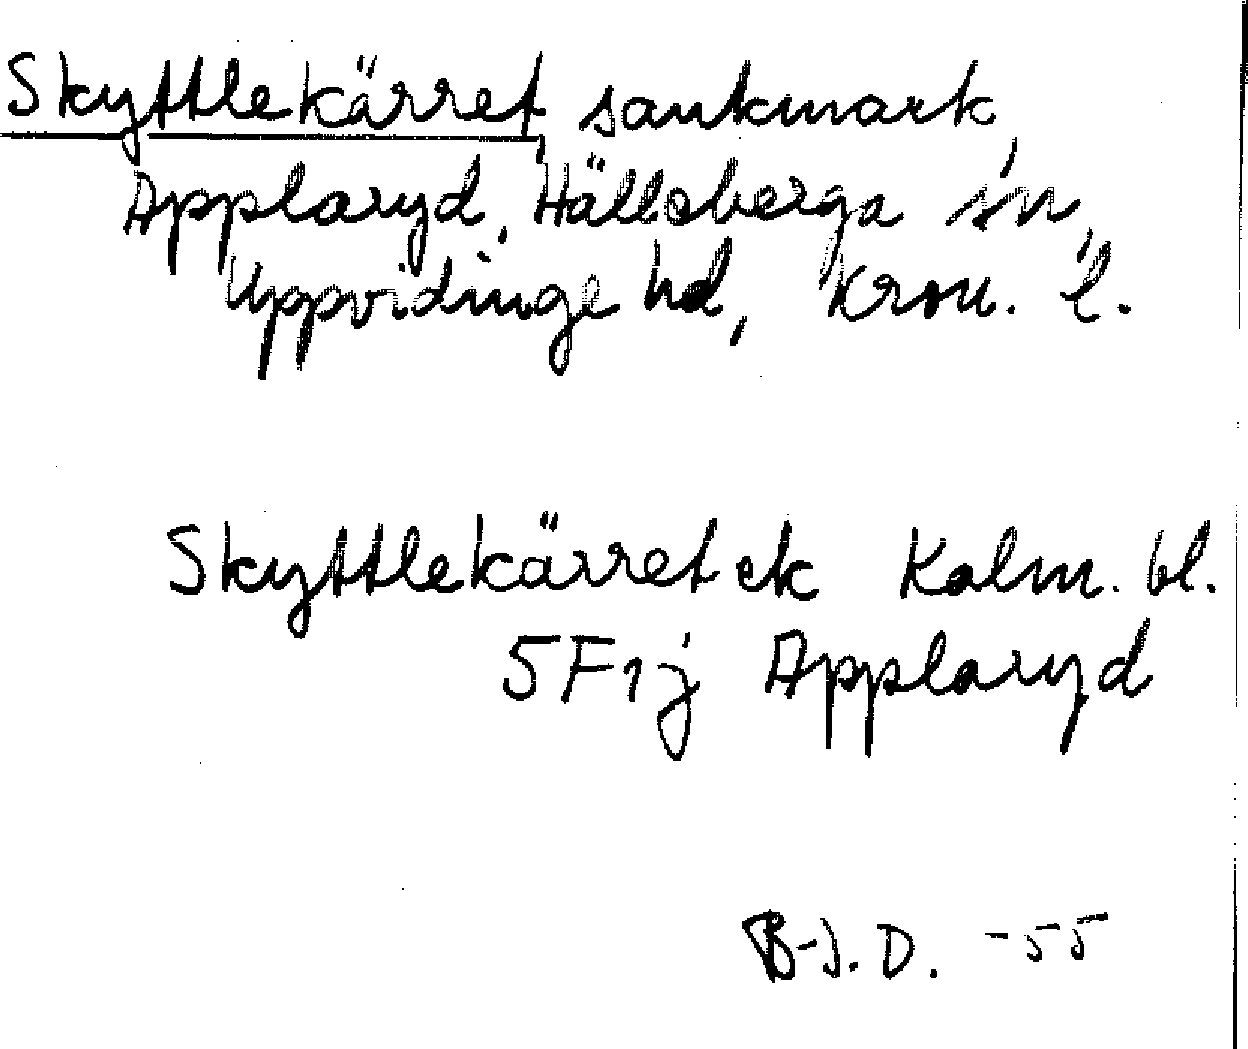 Skyttlekärret, sankmark,
Applaryd, Hälleberga sn,
Uppvidinge hd, Kron. l.
Skyttlekärret ek Kalm. bl.
5F1j Applaryd
B-J. D. -55